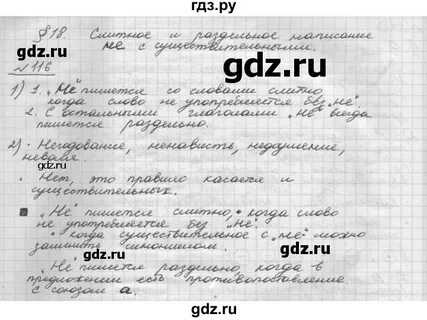 gdz.ru
§18. Слитное и раздельное написание
не с существительными.
№116
1) 1. "Не" пишется со словами слитно,
когда слово не употребляется без "Не".
2. С остальными глаголами "Не" всегда
пишется раздельно.
2) • Негодование, ненависть, недоумение,
неваля.
• Нет, это правило касается и
существительных.
"Не" пишется слитно, • когда слово
не употребляется без "Не".
• когда существительное с "не" можно
заменить синонимом.
"Не" пишется раздельно, когда в
предложении есть противопоставление
с союзом а.
gdz.ru
gdz.ru
gdz.ru
gdz.ru
gdz.ru
gdz.ru